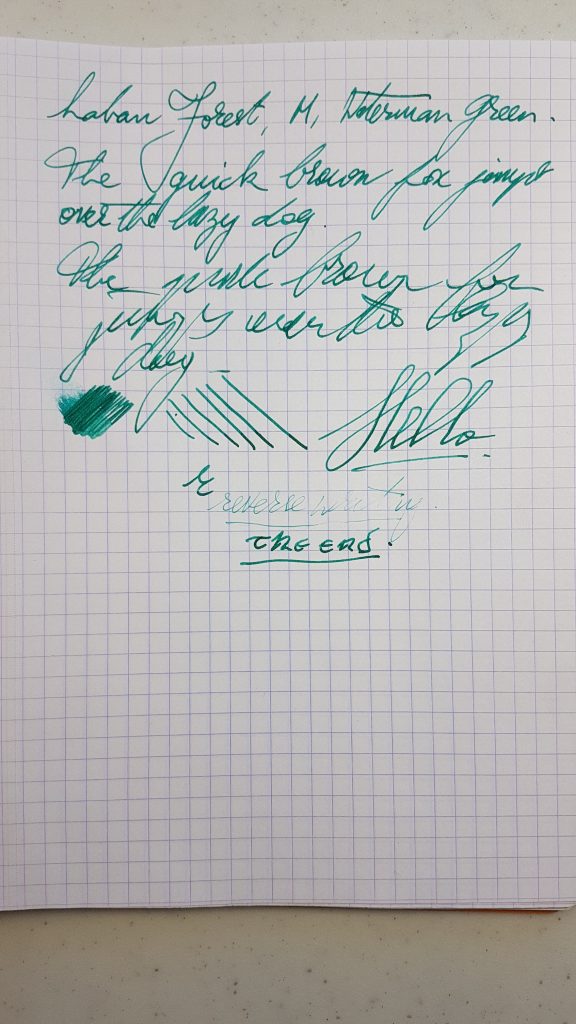 Laban Forest, M, Waterman green.
The quick brown fox jumps
over the lazy dog.
The quick brown fox
jumps over the lazy
dog
Hello
r
reverse writing.
THE END.